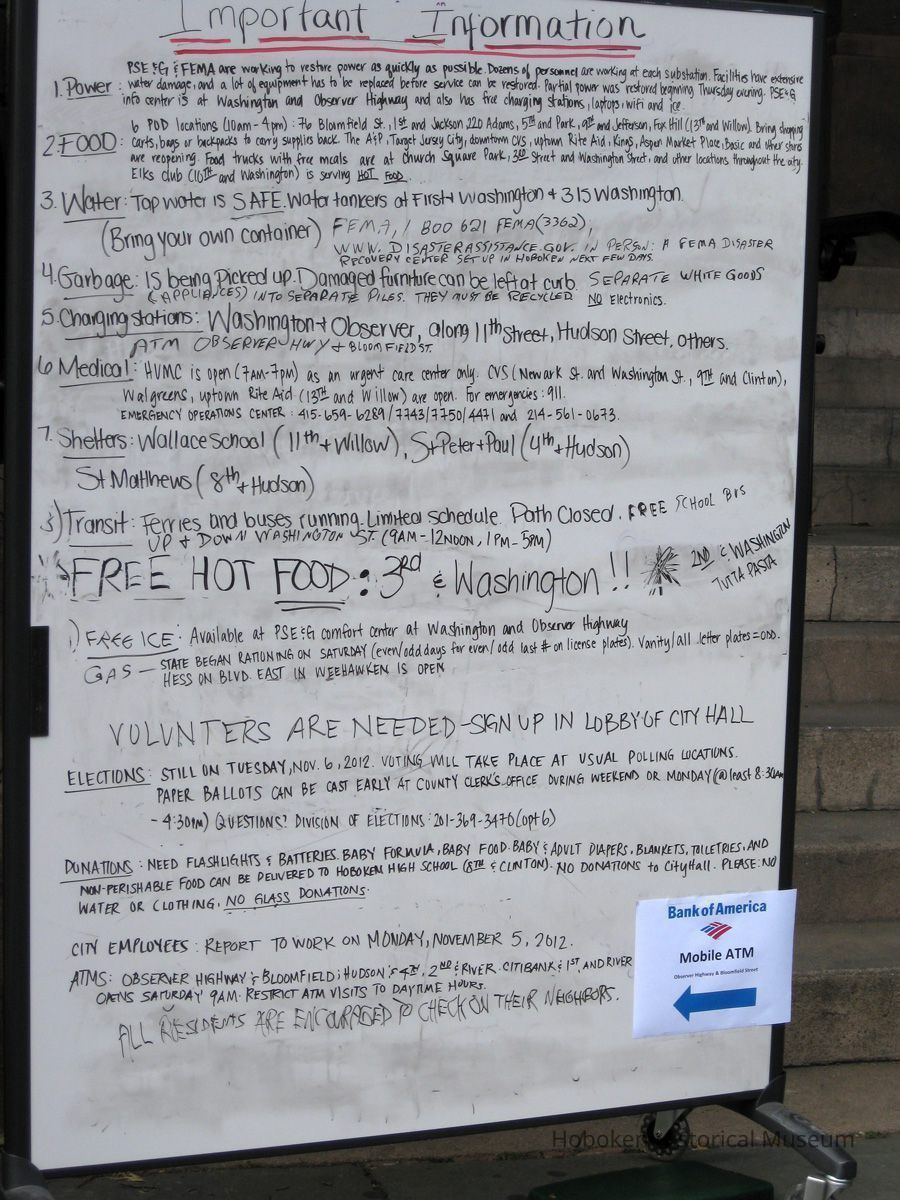 Important Information
PSE&G & FEMA are working to restore power as quickly as possible. Dozens of personnel are working at each substation. Facilities have extensive
1. Power: water damage, and a lot of equipment has to be replaced before service can be restored. Partial power was restored beginning Thursday evening. PSE&G
info center is at Washington and Observer Highway and also has free charging stations, laptops, wifi and ice.
6 POD locations (10am-4pm): 76 Bloomfield St., 1st and Jackson, 220 Adams, 5th and Park, 9th and Jefferson, Fox Hill (13th and Willow). Bring shopping
2. FOOD: carts, bags or backpacks to carry supplies back. The A&P, Target Jersey City, downtown CVS, uptown Rite Aid, Kings, Aspen Market Place, Basic and other stores
are reopening. Food trucks with free meals are at Church Square Park, 3rd Street and Washington Street, and other locations throughout the city.
Elks club (10th and Washington) is serving HOT FOOD.
3. Water: Tap water is SAFE. Water tankers at First + Washington + 315 Washington.
(Bring your own container) FEMA, 1 800 621 FEMA (3362),
WWW.DISASTERASSISTANCE.GOV. IN PERSON: A FEMA DISASTER
RECOVERY CENTER SET UP IN HOBOKEN NEXT FEW DAYS.
4. Garbage: Is being picked up. Damaged furniture can be left at curb. SEPARATE WHITE GOODS
(APPLIANCES) INTO SEPARATE PILES. THEY MUST BE RECYCLED. NO Electronics.
5. Charging stations: Washington + Observer, along 11th Street, Hudson Street, others.
ATM OBSERVER HWY + BLOOMFIELD ST.
6 Medical: HUMC is open (7am-7pm) as an urgent care center only. CVS (Newark St. and Washington St., 9TH and Clinton),
Walgreens, uptown Rite Aid (13TH and Willow) are open. For emergencies: 911.
EMERGENCY OPERATIONS CENTER: 415-659-6289/7743/7750/4471 and 214-561-0673.
7. Shelters: Wallace School (11th + Willow), St Peter + Paul (4th + Hudson)
St Matthews (8th + Hudson)
8) Transit: Ferries and buses running. Limited schedule. Path Closed. FREE SCHOOL BUS
UP + DOWN WASHINGTON ST. (9AM-12NOON, 1PM-5PM)
FREE HOT FOOD: 3rd & Washington!! 2ND & WASHINGTON
TUTTA PASTA
FREE ICE: Available at PSE&G comfort center at Washington and Observer Highway
GAS — STATE BEGAN RATIONING ON SATURDAY (even/odd days for even/odd last # on license plates). Vanity/all letter plates = ODD.
HESS ON BLVD. EAST IN WEEHAWKEN IS OPEN
VOLUNTERS ARE NEEDED - SIGN UP IN LOBBY OF CITY HALL
ELECTIONS: STILL ON TUESDAY, NOV. 6, 2012. VOTING WILL TAKE PLACE AT USUAL POLLING LOCATIONS.
PAPER BALLOTS CAN BE CAST EARLY AT COUNTY CLERK'S OFFICE DURING WEEKEND OR MONDAY (@ least 8:30am
- 4:30PM) QUESTIONS? DIVISION OF ELECTIONS: 201-369-3470 (opt 6)
DONATIONS: NEED FLASHLIGHTS & BATTERIES. BABY FORMULA, BABY FOOD. BABY & ADULT DIAPERS, BLANKETS, TOILETRIES, AND
NON-PERISHABLE FOOD CAN BE DELIVERED TO HOBOKEN HIGH SCHOOL (8TH & CLINTON). NO DONATIONS to City Hall. PLEASE: NO
WATER OR CLOTHING. NO GLASS DONATIONS.
CITY EMPLOYEES: REPORT TO WORK ON MONDAY, NOVEMBER 5, 2012.
ATMS: OBSERVER HIGHWAY & BLOOMFIELD; HUDSON & 4TH, 2ND & RIVER. CITIBANK & 1ST, AND RIVER
OPENS SATURDAY 9AM. RESTRICT ATM VISITS TO DAYTIME HOURS.
ALL RESIDENTS ARE ENCOURAGED TO CHECK ON THEIR NEIGHBORS.
Bank of America
Mobile ATM
Observer Highway & Bloomfield Street
Hoboken Historical Museum